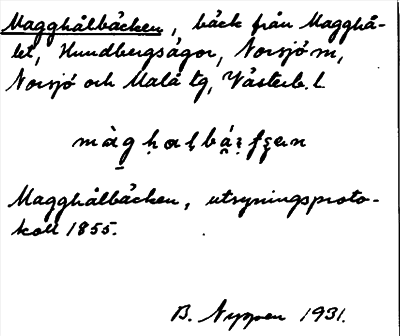 Magghålbäcken, bäck från Magghå-
let, Hundbergsågor, Norsjö sn,
Norsjö och Malå tg, Västerb. l.
Magghålbäcken, utsyningsproto-
koll 1855.
B. Nyppen 1931.